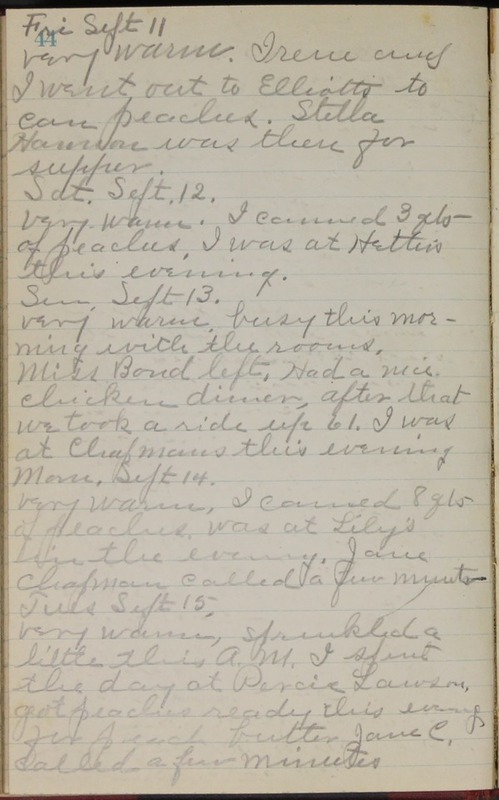 Fri Sept 11
44
very warm. Irene and
I went out to Elliotts to
can peaches. Stella
Hannon was there for
supper.
Sat. Sept. 12.
very warm. I canned 3 qts
of peaches, I was at Hettie's
this evening.
Sun, Sept 13.
very warm, busy this mor-
ning with the rooms.
Miss Bond left, Had a nice
chicken dinner, after that
we took a ride up 61. I was
at Chapmans this evening
Mon. Sept 14.
very warm, I canned 8 qts
of peaches. was at Lily's
in the evening. Jane
Chapman called a few minutes
Tues Sept 15,
very warm, sprinkled a
little this A.M. I spent
the day at Percie Lawson,
got peaches ready this evening
for peach butter Jane C.
called a few minutes